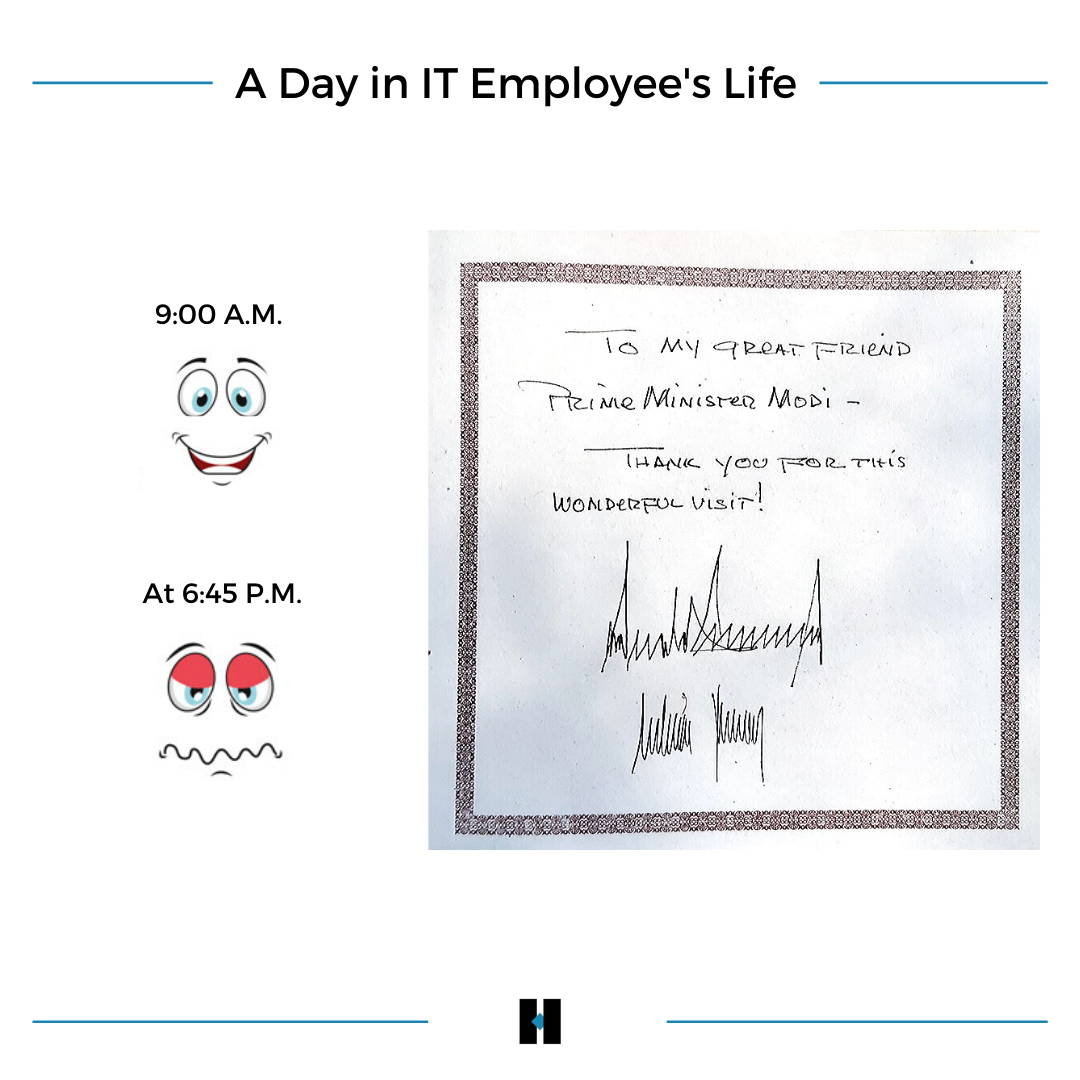 A Day in IT Employee's Life
9:00 A.M.
At 6:45 P.M.
TO MY GREAT FRIEND
PRIME MINISTER MODI –
THANK YOU FOR THIS
WONDERFUL VISIT!